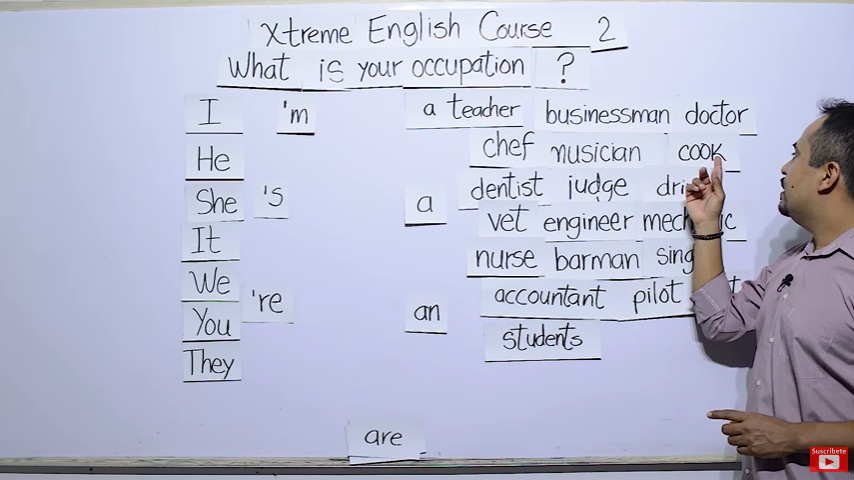 Xtreme English Course 2
What is your occupation ?
I 'm a teacher businessman doctor
He chef musician cook
She 's a dentist judge
It vet engineer
We nurse barman
You 're an accountant pilot
They students
are
Suscríbete